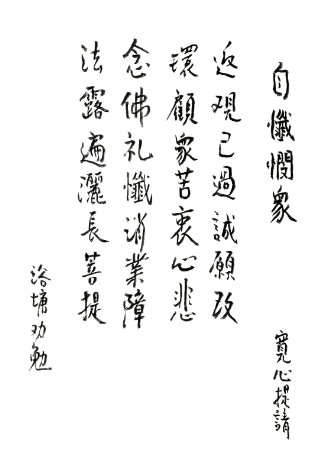 自懺憫眾
寬心提請
近視己過誠願改
環顧眾苦衷心悲
念佛礼懺消業障
法露遍灑長菩提
浴塘功勉